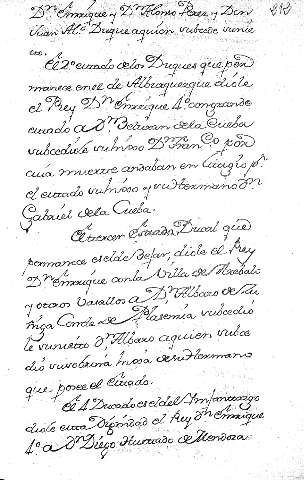 Dⁿ Enrrique y Dⁿ Alonso Perez y Don
Juan Alº Duque aquien subcede su nie
to.
El 2º estado de los Duques que per
manece en el de Alburquerque diole
el Rey Dⁿ Enrrique 4º con grande
estado a Dⁿ Beltran de la Cueba
subcediole su hijo Dⁿ Franᶜᵒ por
cuia muerte andaban en litigio pʳ
el estado su hijo y su hermano Dⁿ
Gabriel de la Cueba.
El tercer Estado Ducal que
permanece es el de Bejar, diole el Rey
Dⁿ Enrrique con la Villa de Arebalo
y otros Vasallos a Dⁿ Albaro de Zu
ñiga Conde de Plasencia subcedio
le su nieto Dⁿ Albaro a quien subce
dio su sobrina hija de su hermano
que posee el Estado.
El 4 Ducado es el del Infantazgo
diole esta Dignidad el Rey Dⁿ Enrrique
4º a Dⁿ Diego Hurtado de Mendoza